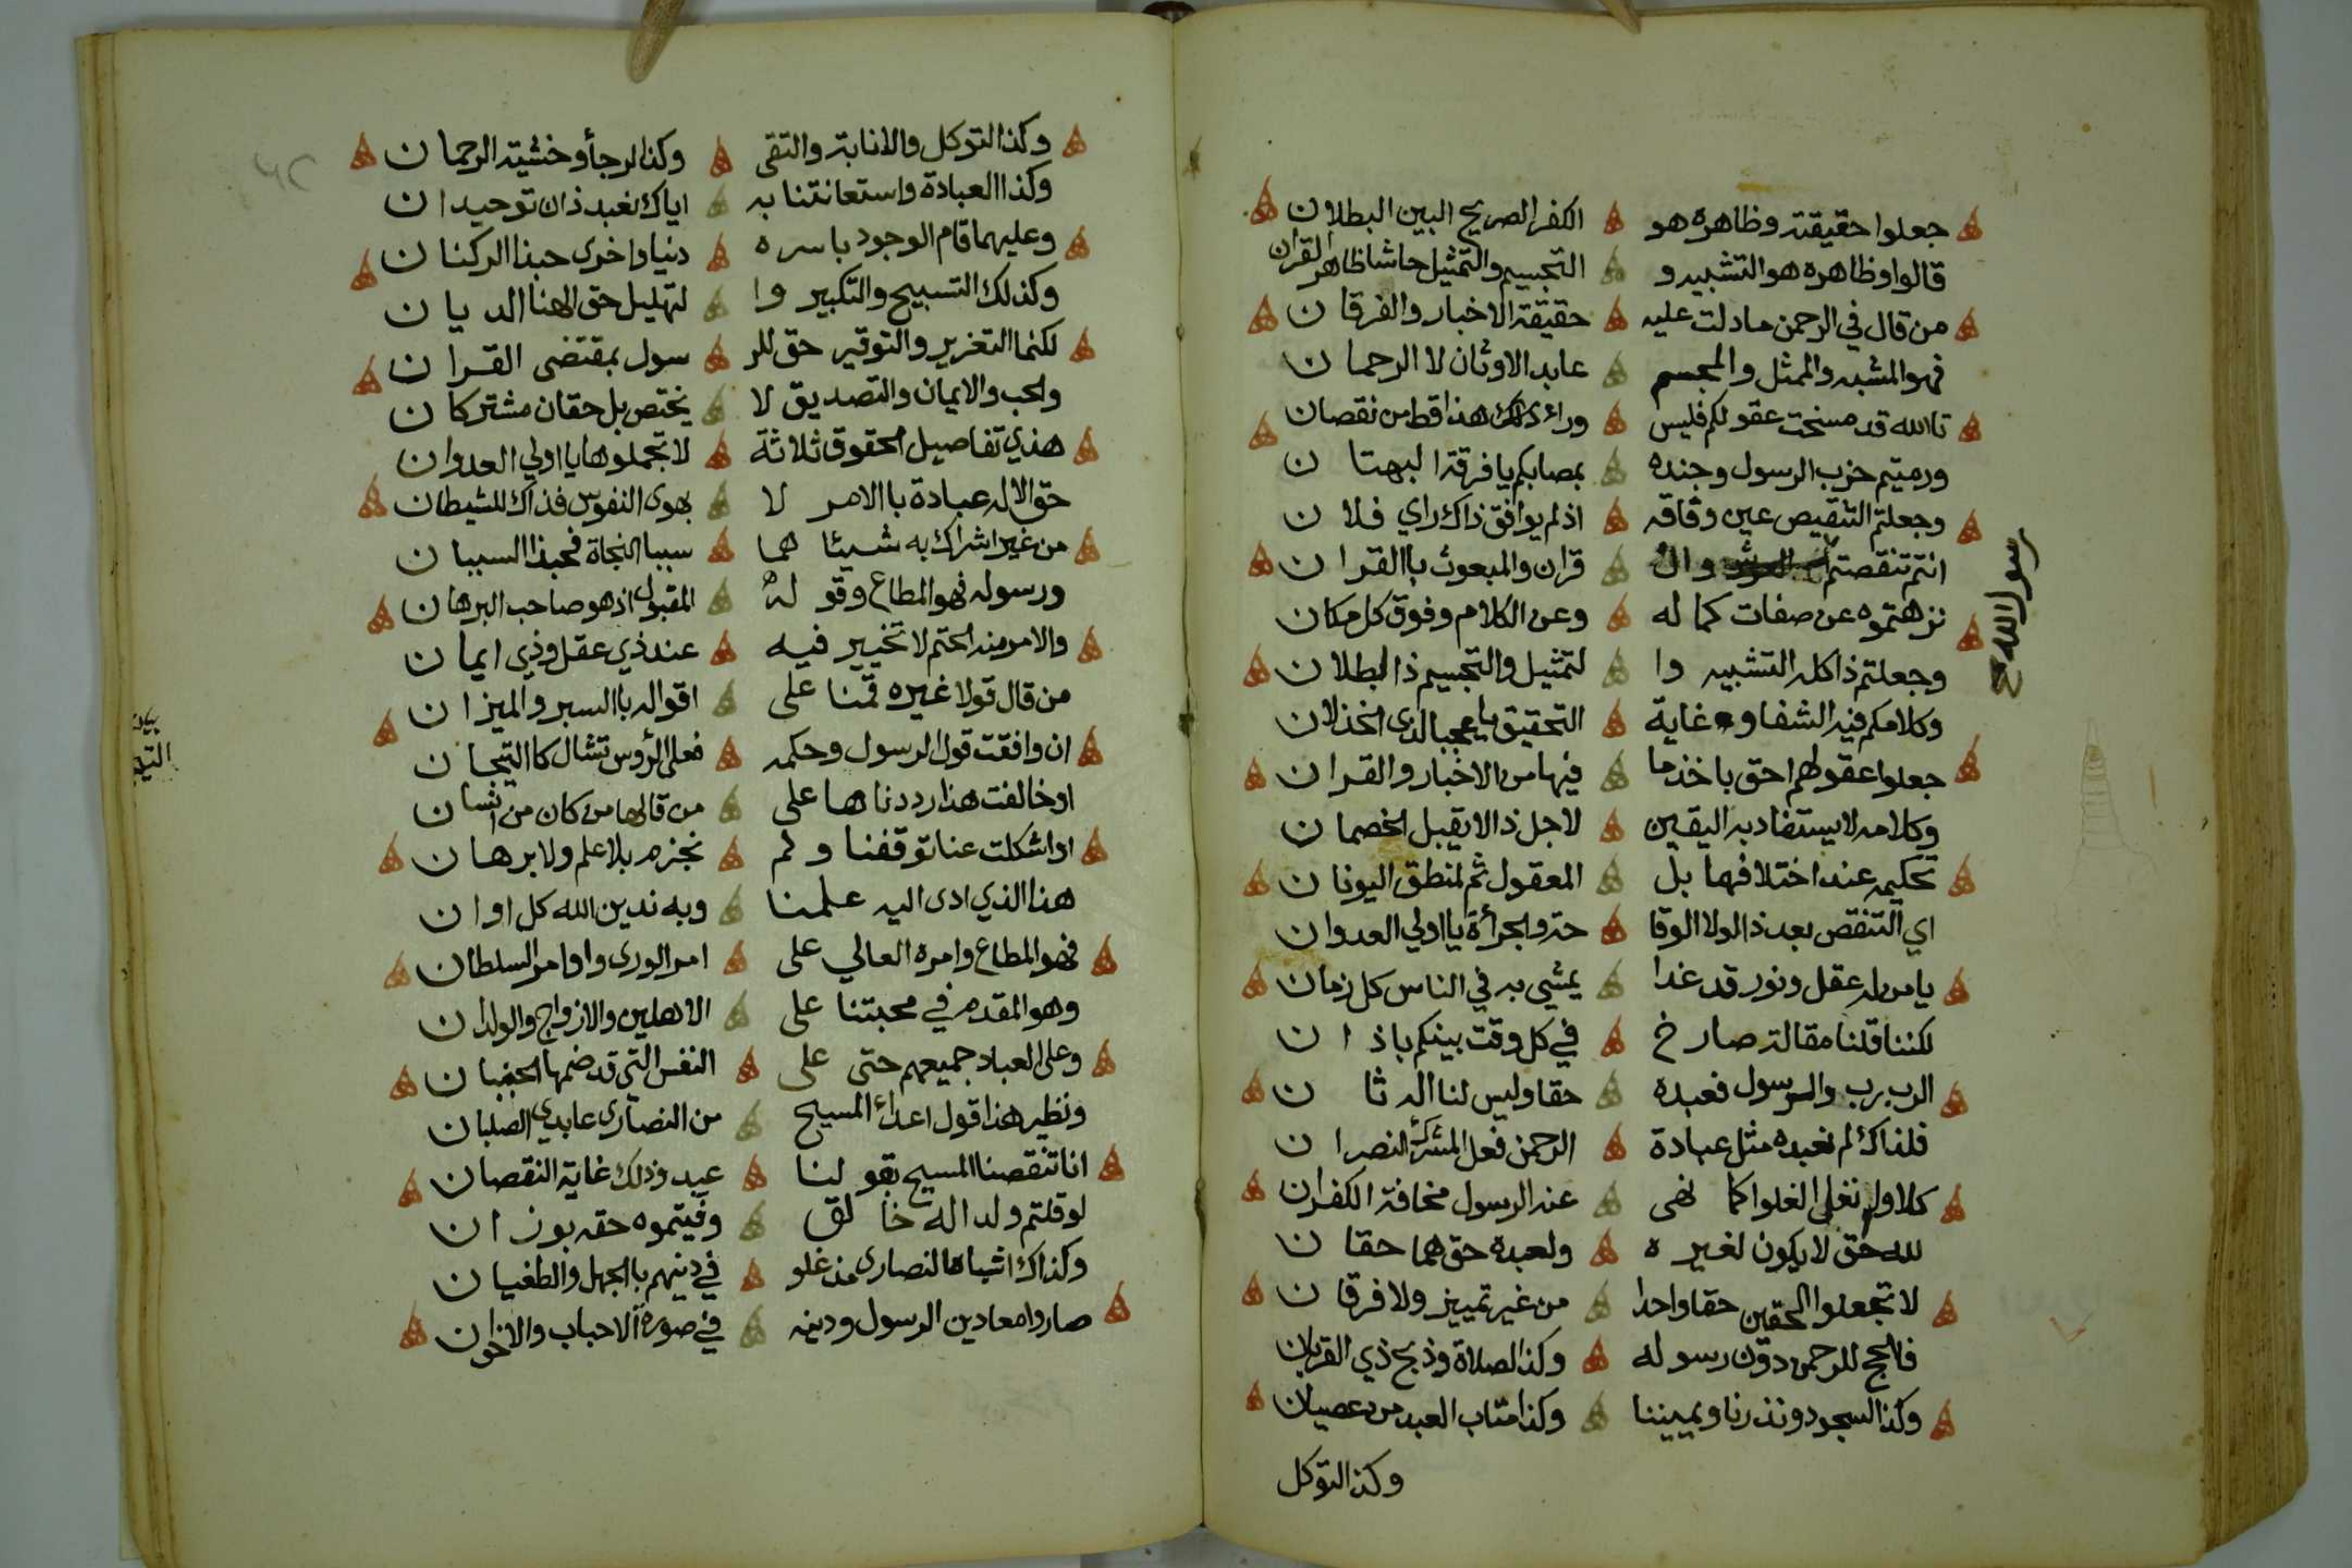 جعلوا حقيقته وظاهره هو الكفر الصريح البين البطلان
قالوا وظاهره هو التشبيه و التجسيم والتمثيل حاشا ظاهر القران
من قال في الرحمن ما دلت عليه حقيقة الاخبار والفرقان
فهو المشبه والممثل والمجسم عابد الاوثان لا الرحمان
تالله قد مسخت عقولكم فليس وراء ذلك هذا قط من نقصان
ورميتم حزب الرسول وجنده بمصابكم يا فرقة البهتان
وجعلتم التنقيص عين وفاقه اذ لم يوافق ذاك راي فلان
انتم تنقصتم وال قران والمبعوث باالقران
رسول الله صح
نزهتموه عن صفات كماله وعن الكلام وفوق كل مكان
وجعلتم ذا كله التشبيه وا لتمثيل والتجسيم ذا البطلان
وكلامكم فيه الشفا وغاية التحقيق يا عجبا لذي الخذلان
جعلوا عقولهم احق باخذ ما فيها من الاخبار والقران
وكلامه لا يستفاد به اليقين لاجل ذا لا يقبل الخصمان
تحكيمه عند اختلافهما بل المعقول ثم لمنطق اليونان
اي التنقص بعد ذا لولا الوقا حة والجرأة يا اولي العدوان
يا من له عقل ونور قد غدا يمشي به في الناس كل زمان
لكننا قلنا مقالة صارخ في كل وقت بينكم باذان
الرب رب والرسول فعبده حقا وليس لنا اله ثان
فلذاك لم نعبده مثل عبادة الرحمن فعل المشرك النصران
كلا ولم نغلو الغلوا كما نهى عنه الرسول مخافة الكفران
لله حق لا يكون لغيره ولعبده حق هما حقان
لا تجعلوا الحقين حقا واحدا من غير تمييز ولا فرقان
فالحج للرحمن دون رسوله وكذا الصلاة وذبح ذي القربان
وكذا السجود ونذرنا ويميننا وكذا متاب العبد من عصيان
وكذا التوكل
وكذا التوكل والانابة والتقى وكذا الرجأ وخشية الرحمان
وكذا العبادة واستعانتنا به اياك نعبد ذان توحيدان
وعليهما قام الوجود باسره دنيا واخرى حبذا الركنان
وكذلك التسبيح والتكبير وا لتهليل حق الهنا الديان
لكنما التعزير والتوقير حق للر سول بمقتضى القران
والحب والايمان والتصديق لا يختص بل حقان مشتركان
هذي تفاصيل الحقوق ثلاثة لا تجملوها يا اولي العدوان
حق الاله عبادة باالامر لا بهوى النفوس فذاك للشيطان
من غير اشراك به شيئا هما سببا النجاة فحبذا السببان
ورسوله فهو المطاع وقوله المقبول اذ هو صاحب البرهان
والامر منه الحتم لا تخيير فيه عند ذي عقل وذي ايمان
من قال قولا غيره قمنا على اقواله باالسبر والميزان
ان وافقت قول الرسول وحكمه فعلى الرؤس تشال كاالتيجان
او خالفت هذا رددناها على من قالها من كان من انسان
او اشكلت عنا توقفنا ولم نجزم بلا علم ولا برهان
هذا الذي ادى اليه علمنا وبه ندين الله كل اوان
فهو المطاع وامره العالي على امر الورى واوامر السلطان
وهو المقدم في محبتنا على الاهلين والازواج والولدان
وعلى العباد جميعهم حتى على النفس التي قد ضمها الجنبان
ونظير هذا قول اعداء المسيح من النصارى عابدي الصلبان
انا تنقصنا المسيح بقولنا عبد وذلك غاية النقصان
لو قلتم ولد اله خالق وفيتموه حقه بوزان
وكذاك اشباه النصارى مذ غلو في دينهم باالجهل والطغيان
صاروا معادين الرسول ودينه في صورة الاحباب والاخوان